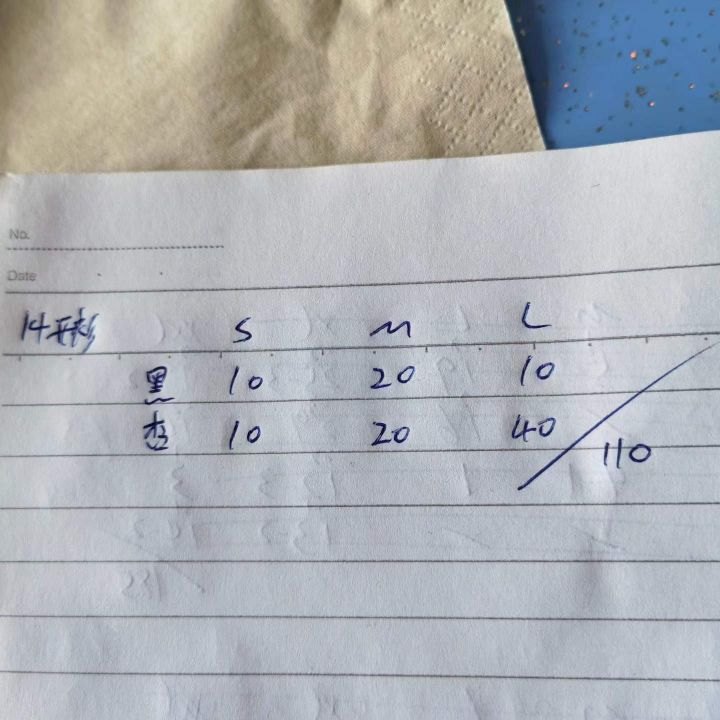 No.
Date
14开衫 S M L
黑 10 20 10
杏 10 20 40
110